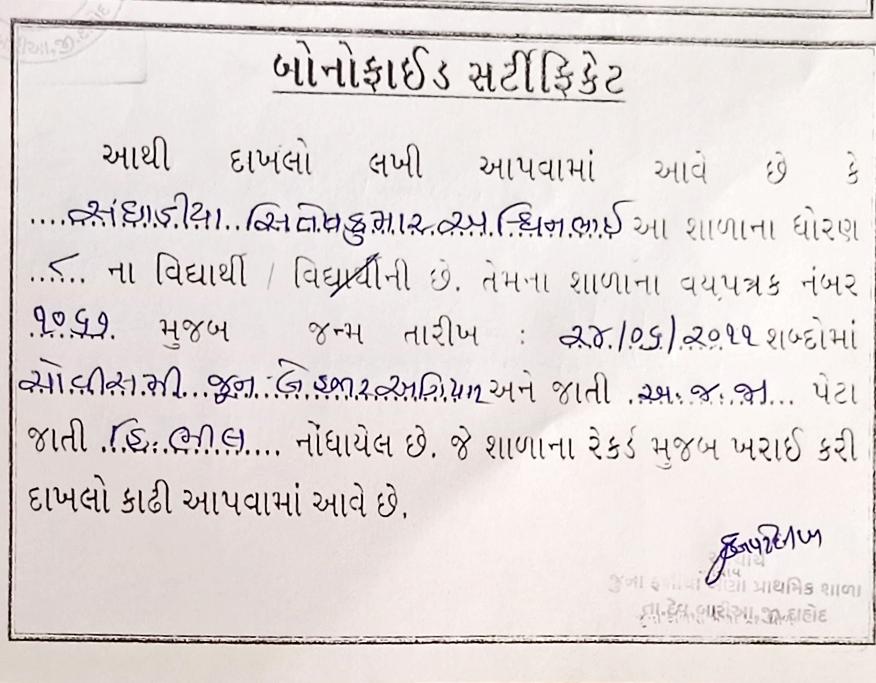 બોનોફાઈડ સર્ટીફિકેટ
આથી દાખલો લખી આપવામાં આવે છે કે
....સંઘાડીયા..સિતેષકુમાર.અશ્વિનભાઈ આ શાળાના ધોરણ
...૮.... ના વિદ્યાર્થી / વિદ્યાર્થીની છે. તેમના શાળાના વયપત્રક નંબર
૧૦૬૧ મુજબ જન્મ તારીખ : ૨૪/૦૬/૨૦૧૧ શબ્દોમાં
ચોવીસમી જૂન બે હજાર અગિયાર અને જાતી .અ.જ.જા... પેટા
જાતી .હિ.ભીલ.... નોંધાયેલ છે. જે શાળાના રેકર્ડ મુજબ ખરાઈ કરી
દાખલો કાઢી આપવામાં આવે છે.
આચાર્ય
જુના પ્રાથમિક શાળા
તા.દેવ.બારીઆ.જી.દાહોદ